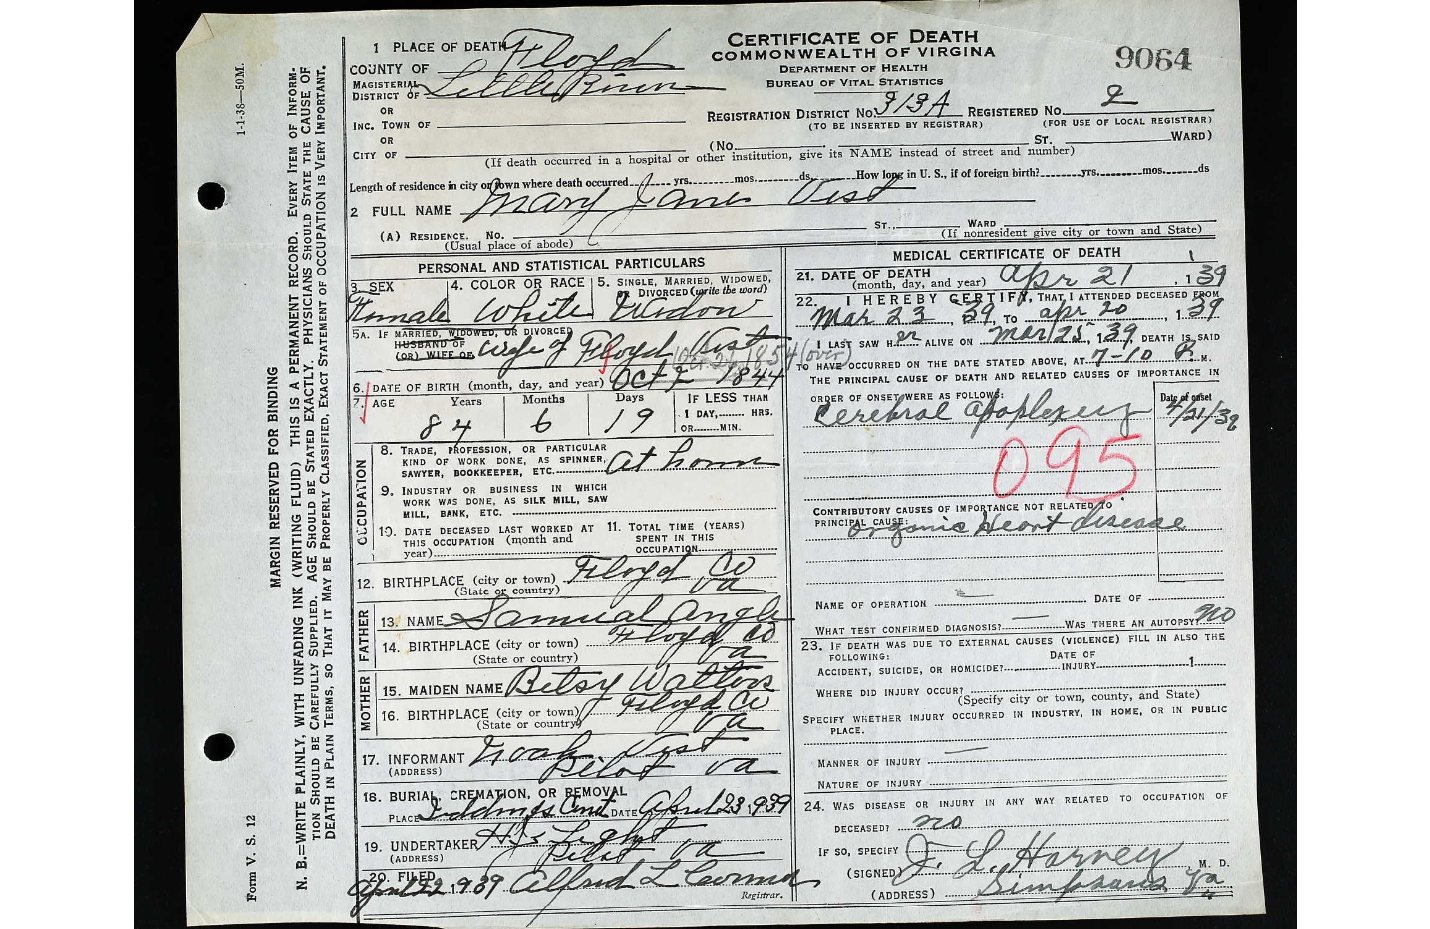 CERTIFICATE OF DEATH
COMMONWEALTH OF VIRGINIA
DEPARTMENT OF HEALTH
BUREAU OF VITAL STATISTICS
9064
1 PLACE OF DEATH
COUNTY OF Floyd
MAGISTERIAL DISTRICT OF Little River
OR
INC. TOWN OF
OR
CITY OF
REGISTRATION DISTRICT No. 313A REGISTERED No. 2
(TO BE INSERTED BY REGISTRAR) (FOR USE OF LOCAL REGISTRAR)
(No. ST. WARD)
(If death occurred in a hospital or other institution, give its NAME instead of street and number)
Length of residence in city or town where death occurred yrs. mos. ds. How long in U. S., if of foreign birth? yrs. mos. ds
2 FULL NAME Mary Jane Vest
(A) RESIDENCE. No. ST., WARD
(Usual place of abode) (If nonresident give city or town and State)
PERSONAL AND STATISTICAL PARTICULARS
3. SEX 4. COLOR OR RACE 5. SINGLE, MARRIED, WIDOWED, OR DIVORCED (write the word)
Female White Widow
5A. IF MARRIED, WIDOWED, OR DIVORCED
HUSBAND OF
(OR) WIFE OF wife of Floyd Vest
1854 (over)
6. DATE OF BIRTH (month, day, and year) Oct 2 1844
7. AGE Years Months Days IF LESS THAN
1 DAY, HRS.
OR MIN.
84 6 19
OCCUPATION
8. TRADE, PROFESSION, OR PARTICULAR
KIND OF WORK DONE, AS SPINNER,
SAWYER, BOOKKEEPER, ETC. At home
9. INDUSTRY OR BUSINESS IN WHICH
WORK WAS DONE, AS SILK MILL, SAW
MILL, BANK, ETC.
10. DATE DECEASED LAST WORKED AT THIS OCCUPATION (month and year)
11. TOTAL TIME (YEARS) SPENT IN THIS OCCUPATION
12. BIRTHPLACE (city or town) Floyd Co
(State or country) Va
FATHER
13. NAME Samuel Angle
14. BIRTHPLACE (city or town) Floyd Co
(State or country) Va
MOTHER
15. MAIDEN NAME Betsy Walters
16. BIRTHPLACE (city or town) Floyd Co
(State or country) Va
17. INFORMANT Noah Vest
(ADDRESS) Pilot Va
18. BURIAL, CREMATION, OR REMOVAL
PLACE Iddings Cemt DATE April 23, 1939
19. UNDERTAKER H. J. Light
(ADDRESS) Pilot Va
20. FILED April 22, 1939 Alfred L
Registrar.
MEDICAL CERTIFICATE OF DEATH
21. DATE OF DEATH
(month, day, and year) Apr 21, 139
22. I HEREBY CERTIFY, THAT I ATTENDED DECEASED FROM
Mar 23, 39, TO apr 20, 1.39
I LAST SAW H er ALIVE ON Mar 25, 1.39, DEATH IS SAID
TO HAVE OCCURRED ON THE DATE STATED ABOVE, AT 7-10 P. M.
THE PRINCIPAL CAUSE OF DEATH AND RELATED CAUSES OF IMPORTANCE IN
ORDER OF ONSET WERE AS FOLLOWS: Date of onset
Cerebral apoplexy 4/21/39
095
CONTRIBUTORY CAUSES OF IMPORTANCE NOT RELATED TO
PRINCIPAL CAUSE:
Organic Heart disease
NAME OF OPERATION DATE OF
WHAT TEST CONFIRMED DIAGNOSIS? WAS THERE AN AUTOPSY? no
23. IF DEATH WAS DUE TO EXTERNAL CAUSES (VIOLENCE) FILL IN ALSO THE
FOLLOWING: DATE OF
ACCIDENT, SUICIDE, OR HOMICIDE? INJURY 1
WHERE DID INJURY OCCUR?
(Specify city or town, county, and State)
SPECIFY WHETHER INJURY OCCURRED IN INDUSTRY, IN HOME, OR IN PUBLIC
PLACE.
MANNER OF INJURY
NATURE OF INJURY
24. WAS DISEASE OR INJURY IN ANY WAY RELATED TO OCCUPATION OF
DECEASED? no
IF SO, SPECIFY
(SIGNED) J. L. Harvey M. D.
(ADDRESS) Simpsons Va
1-1-38—50M.
Form V. S. 12
MARGIN RESERVED FOR BINDING
N. B.—WRITE PLAINLY, WITH UNFADING INK (WRITING FLUID) THIS IS A PERMANENT RECORD. EVERY ITEM OF INFORM-
TION SHOULD BE CAREFULLY SUPPLIED. AGE SHOULD BE STATED EXACTLY. PHYSICIANS SHOULD STATE THE CAUSE OF
DEATH IN PLAIN TERMS, SO THAT IT MAY BE PROPERLY CLASSIFIED, EXACT STATEMENT OF OCCUPATION IS VERY IMPORTANT.